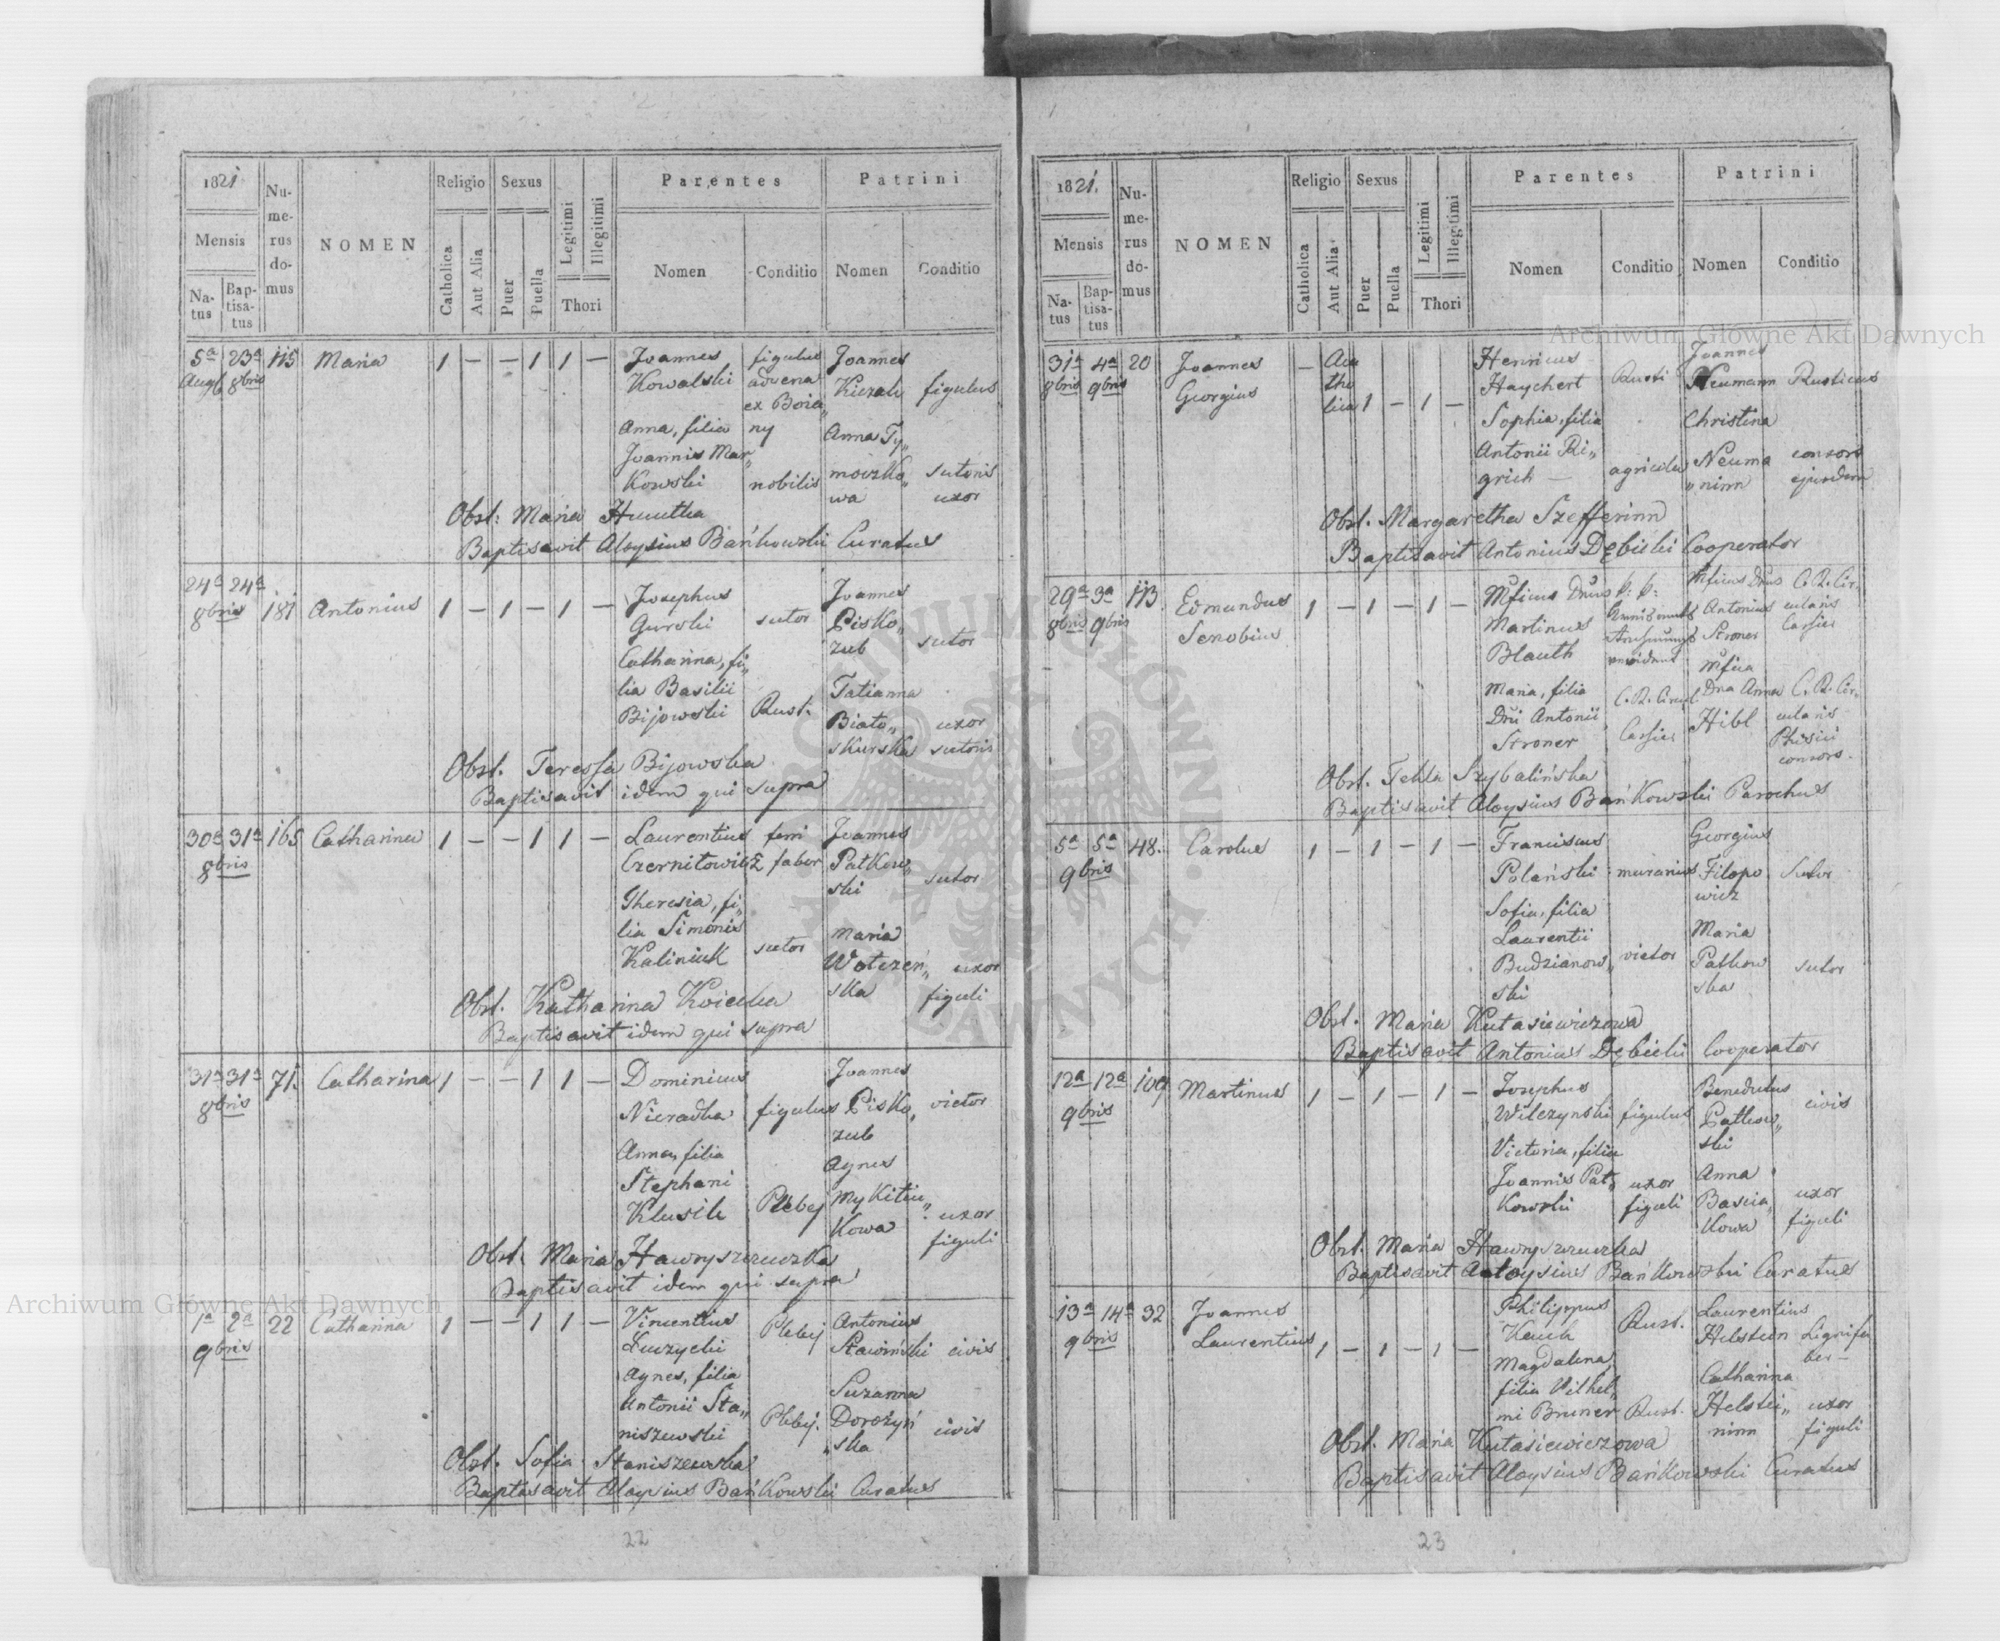 1821.
Numerus domus
NOMEN
Religio
Sexus
Legitimi
Illegitimi
Parentes
Patrini
Mensis
Catholica
Aut Alia
Puer
Puella
Thori
Nomen
Conditio
Nomen
Conditio
Natus
Baptisatus
5ª 23ª 115 Maria 1 — — 1 1 — Joannes figulus Joannes
Augti 8bris Kowalski advena figulus
ex Boia„
Anna, filia ny Anna Ty„
Joannis Mar„
Kowski nobilis mowzko„ sutoris
wa uxor
Obst: Maria
Baptisavit Aloysius Bańkowski Curatus
24ª 24ª 181 Antonius 1 — 1 — 1 — Josephus Joannes
8bris Gurski sutor Pisko„ sutor
zub
Catharina, fi„
lia Basilii Tatianna
Bijowski Rust. Biało„ uxor
skurska sutoris
Obst. Teressa Bijowska
Baptisavit idem qui supra
30ª 31ª 165 Catharina 1 — — 1 1 — Laurentius ferri Joannes
8bris Czernitowicz faber Patkow„ sutor
ski
Theresia, fi„
lia Simonis Maria
Kaliniuk sutor Wołczeń„ uxor
ska figuli
Obst. Katharina
Baptisavit idem qui supra
31ª 31ª 71. Catharina 1 — — 1 1 — Dominicus Joannes
8bris Nieradka figulus Pisko„ victor
zub
Anna, filia Agnes
Stephani Mykitiu„
Klusik Plebej Kowa uxor
figuli
Obst. Maria Hawryszczuczka
Baptisavit idem qui supra
1ª 2ª 22 Catharina 1 — — 1 1 — Vincentius Plebej Antonius
9bris Łuczycki Sławiński civis
Agnes, filia Suzanna
Antonii Sta„ Plebej. Dorożyń civis
niszewski „ska
Obst. Sofia Staniszewska
Baptisavit Aloysius Bańkowski Curatus
22
1821.
Numerus domus
NOMEN
Religio
Sexus
Legitimi
Illegitimi
Parentes
Patrini
Mensis
Catholica
Aut Alia
Puer
Puella
Thori
Nomen
Conditio
Nomen
Conditio
Natus
Baptisatus
31ª 4ª 20 Joannes — Aca Henricus Joannes
8bris 9bris Georgius tho Haychert Rusti Neumann Rusticus
lica 1 — 1 — Sophia, filia Christina
Antonii Di„ Neuma consors
grich — agricola „ninn ejusdem
Obst. Margaretha Szefferinn
Baptisavit Antonius Dębicki Cooperator
29ª 3ª 113 Edmundus 1 — 1 — 1 — Mficus Dnus Mficus Dnus C. R. Cir„
8bris 9bris Senobius Martinus Antonius cularis
Blauth Stroner Cassier
Maria, filia Mfica
Dni Antonii C. R. Dna Anna C. R. Cir„
Stroner Cassier Hibl cularis
Phisici
consors.
Obst. Tekla Szybalińska
Baptisavit Aloysius Bańkowski Parochus
5ª 5ª 48. Carolus 1 — 1 — 1 — Franciscus Georgius
9bris Polański murarius Filopo sutor
wicz
Sofia, filia
Laurentii Maria
Budzianow„ victor Patkow sutor
ski ska
Obst. Maria Kutasiewiczowa
Baptisavit Antonius Dębicki Cooperator
12ª 12ª 109 Martinus 1 — 1 — 1 — Josephus Benedictus
9bris Wilczynski figulus Patkow„ civis
ski
Victoria, filia
Joannis Pat„ uxor Anna
Kowski figuli Basiia„ uxor
Kowa figuli
Obst. Maria Hawryszczuczka
Baptisavit Aloysius Bańkowski Curatus
13ª 14ª 32 Joannes Philippus Rust. Laurentius
9bris Laurentius 1 — 1 — 1 — Kauk Helstein Lignifa
ber —
Magdalena Catharina
filia Vilhel„
mi Bruner Rust. Helstei„ uxor
ninn figuli
Obst. Maria Kutasiewiczowa
Baptisavit Aloysius Bańkowski Curatus
23
Archiwum Główne Akt Dawnych
Archiwum Główne Akt Dawnych
ARCHIWUM GŁÓWNE AKT DAWNYCH